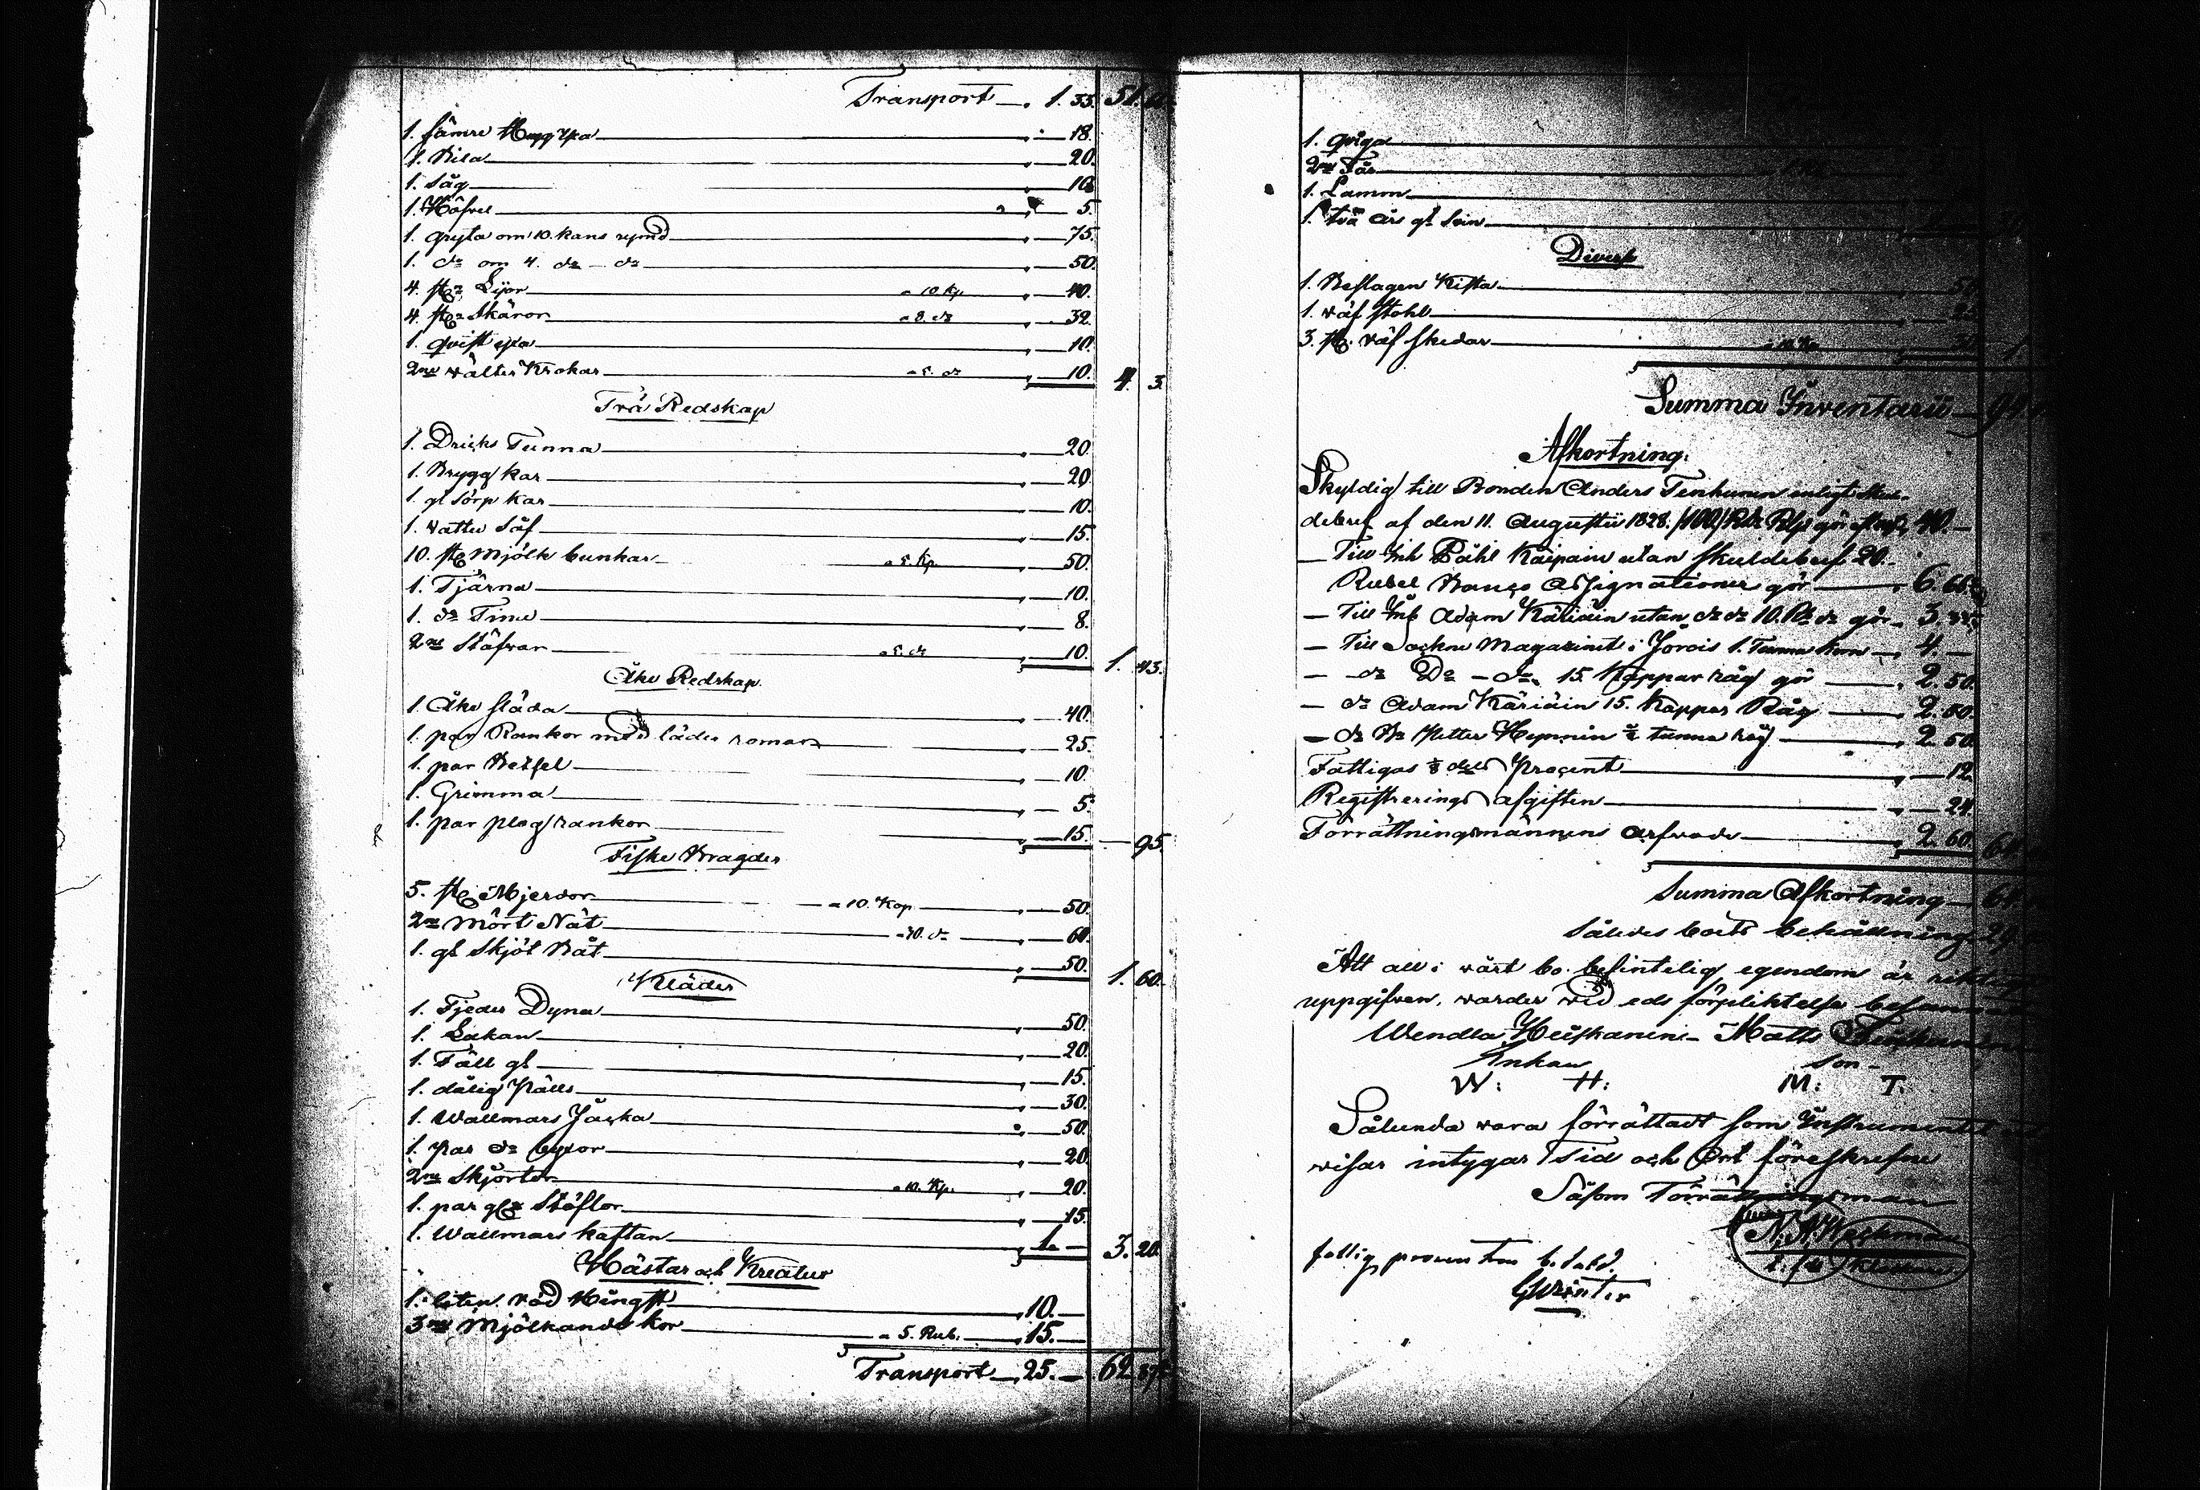 Transport 1. 35. 51.
1. sämre Hugg yxa 18.
1. Bila 20.
1. Såg 16
1. Höfvel 5.
1. gryta om 10. kans rymd 75.
1. do om 4. do do 50.
4. st. Lijor a 10. Kp. 40.
4. st. Skäror a 8. do 32.
1. qvist yxa 10.
2ne välter Krokar a 5. do 10. 4. 3.
Trä Redskap
1. Dricks Tunna 20.
1. Brygg kar 20.
1. gl Sörp kar 10.
1. vattu Så 15.
10. st. Mjölk bunkar a 5. Kp. 50.
1. Tjärna 10.
1. do Tine 8.
2ne Stäfvar a 5. do 10. 1. 43.
Åke Redskap.
1. Åke släda 40.
1. par Rankor med läder remar 25.
1. par Betsel 10.
1. Grimma 5.
1. par plog rankor 15. 95.
Fiske Bragder
5. st. Mjerdor a 10. Kop. 50.
2ne Mört Nät a 30. do 60.
1. gl Skjöt Båt 50. 1. 60.
Kläder
1. Fjeder Dyna 50.
1. Lakan 20.
1. Fäll gl 15.
1. dålig Pälls 30.
1. Wallmars Jacka 50.
1. Par do byxor 20.
2ne Skjortor a 10. Kp. 20.
1. par gl Stöflor 15.
1. Wallmars kaftan 1. 3. 20.
Hästar och Kreatur
1. liten röd Hingst 10.
3ne Mjölkande kor a 5. Rub. 15.
Transport 25. 62.
1. qviga
2ne Får
1. Lamm
1. två års gl Svin
Diverse
1. Beslagen Kista 50
1. väf stohl 25
3. st. väf skedar a 10. Kp 30 1.
Summa Inventarii
Afkortning:
Skyldig till Bonden Anders Tenhunen enligt skul-
debref af den 11. Augusti 1828. /100/ Rdr Rgs gör 40.
Till Inh Påhl Käipäin utan skuldebref 20.
Rubel Banco Assignationer gör 6. 66
Till Inh Adam Käriäin utan do do 10. Rb do gör 3. 33
Till Sockne Magazinet i Jorois 1. Tunna Korn 4.
do Do do 15. Kappar råg gör 2. 50.
do Adam Käriäin 15. Kappar Råg 2. 50.
do Bo Petter Heynnin ½ tunna råg 2. 50.
Fattigas ⅛ dels Procent 12.
Registerings afgiften 24.
Förrättningsmännens arfvode 2. 60.
Summa Afkortning
således boets behållning 29
Att all i vårt bo befintelig egendom är riktigt
uppgifven, varder vid eds förpliktelse
Wendla Heiskanen Matts
Enkan Son
W: H: M: T.
Sålunda vara förrättadt som Instrumentet
visar intygar Tid och Ort föreskrefne
Såsom Förrättningsman
fattig procenten b. latd.
GWinter